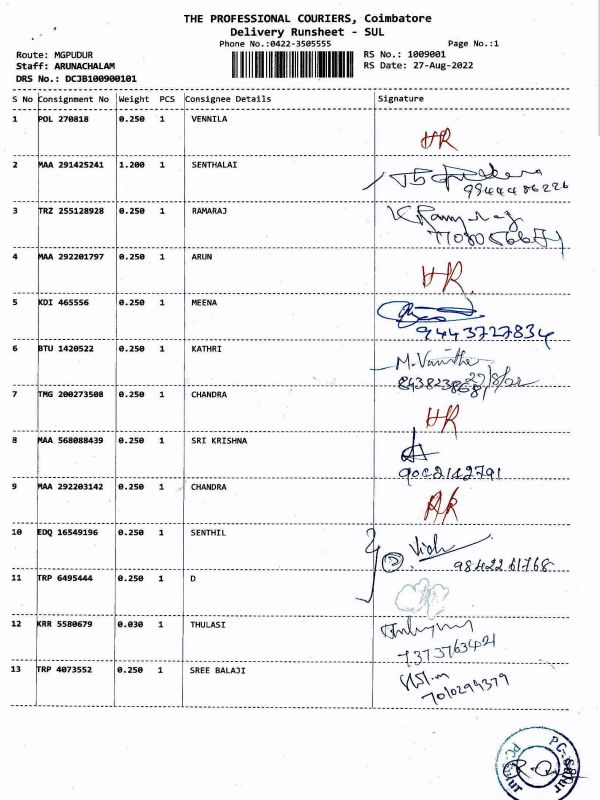 THE PROFESSIONAL COURIERS, Coimbatore
Delivery Runsheet - SUL
Phone No.:0422-3505555 Page No.:1
Route: MGPUDUR RS No.: 1009001
Staff: ARUNACHALAM RS Date: 27-Aug-2022
DRS No.: DCJB100900101
S No Consignment No Weight PCS Consignee Details Signature
1 POL 270818 0.250 1 VENNILA
2 MAA 291425241 1.200 1 SENTHALAI
9944406226
3 TRZ 255128928 0.250 1 RAMARAJ
4 MAA 292201797 0.250 1 ARUN
5 KDI 465556 0.250 1 MEENA
9443727834
6 BTU 1420522 0.250 1 KATHRI
M. Vanitha
27/8/22
7 TMG 200273508 0.250 1 CHANDRA
8 MAA 568088439 0.250 1 SRI KRISHNA
9 MAA 292203142 0.250 1 CHANDRA
10 EDQ 16549196 0.250 1 SENTHIL
9842261768
11 TRP 6495444 0.250 1 D
12 KRR 5580679 0.030 1 THULASI
7373763421
13 TRP 4073552 0.250 1 SREE BALAJI
7010299379